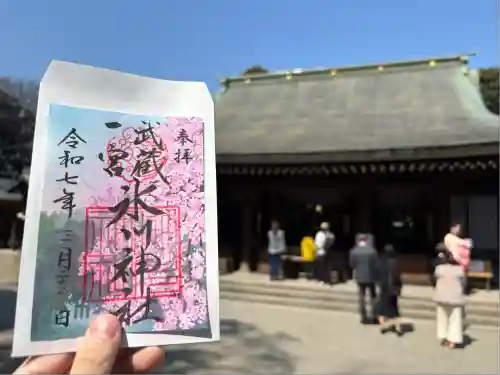 奉拝
武蔵
一宮
氷川神社
令和七年三月
日